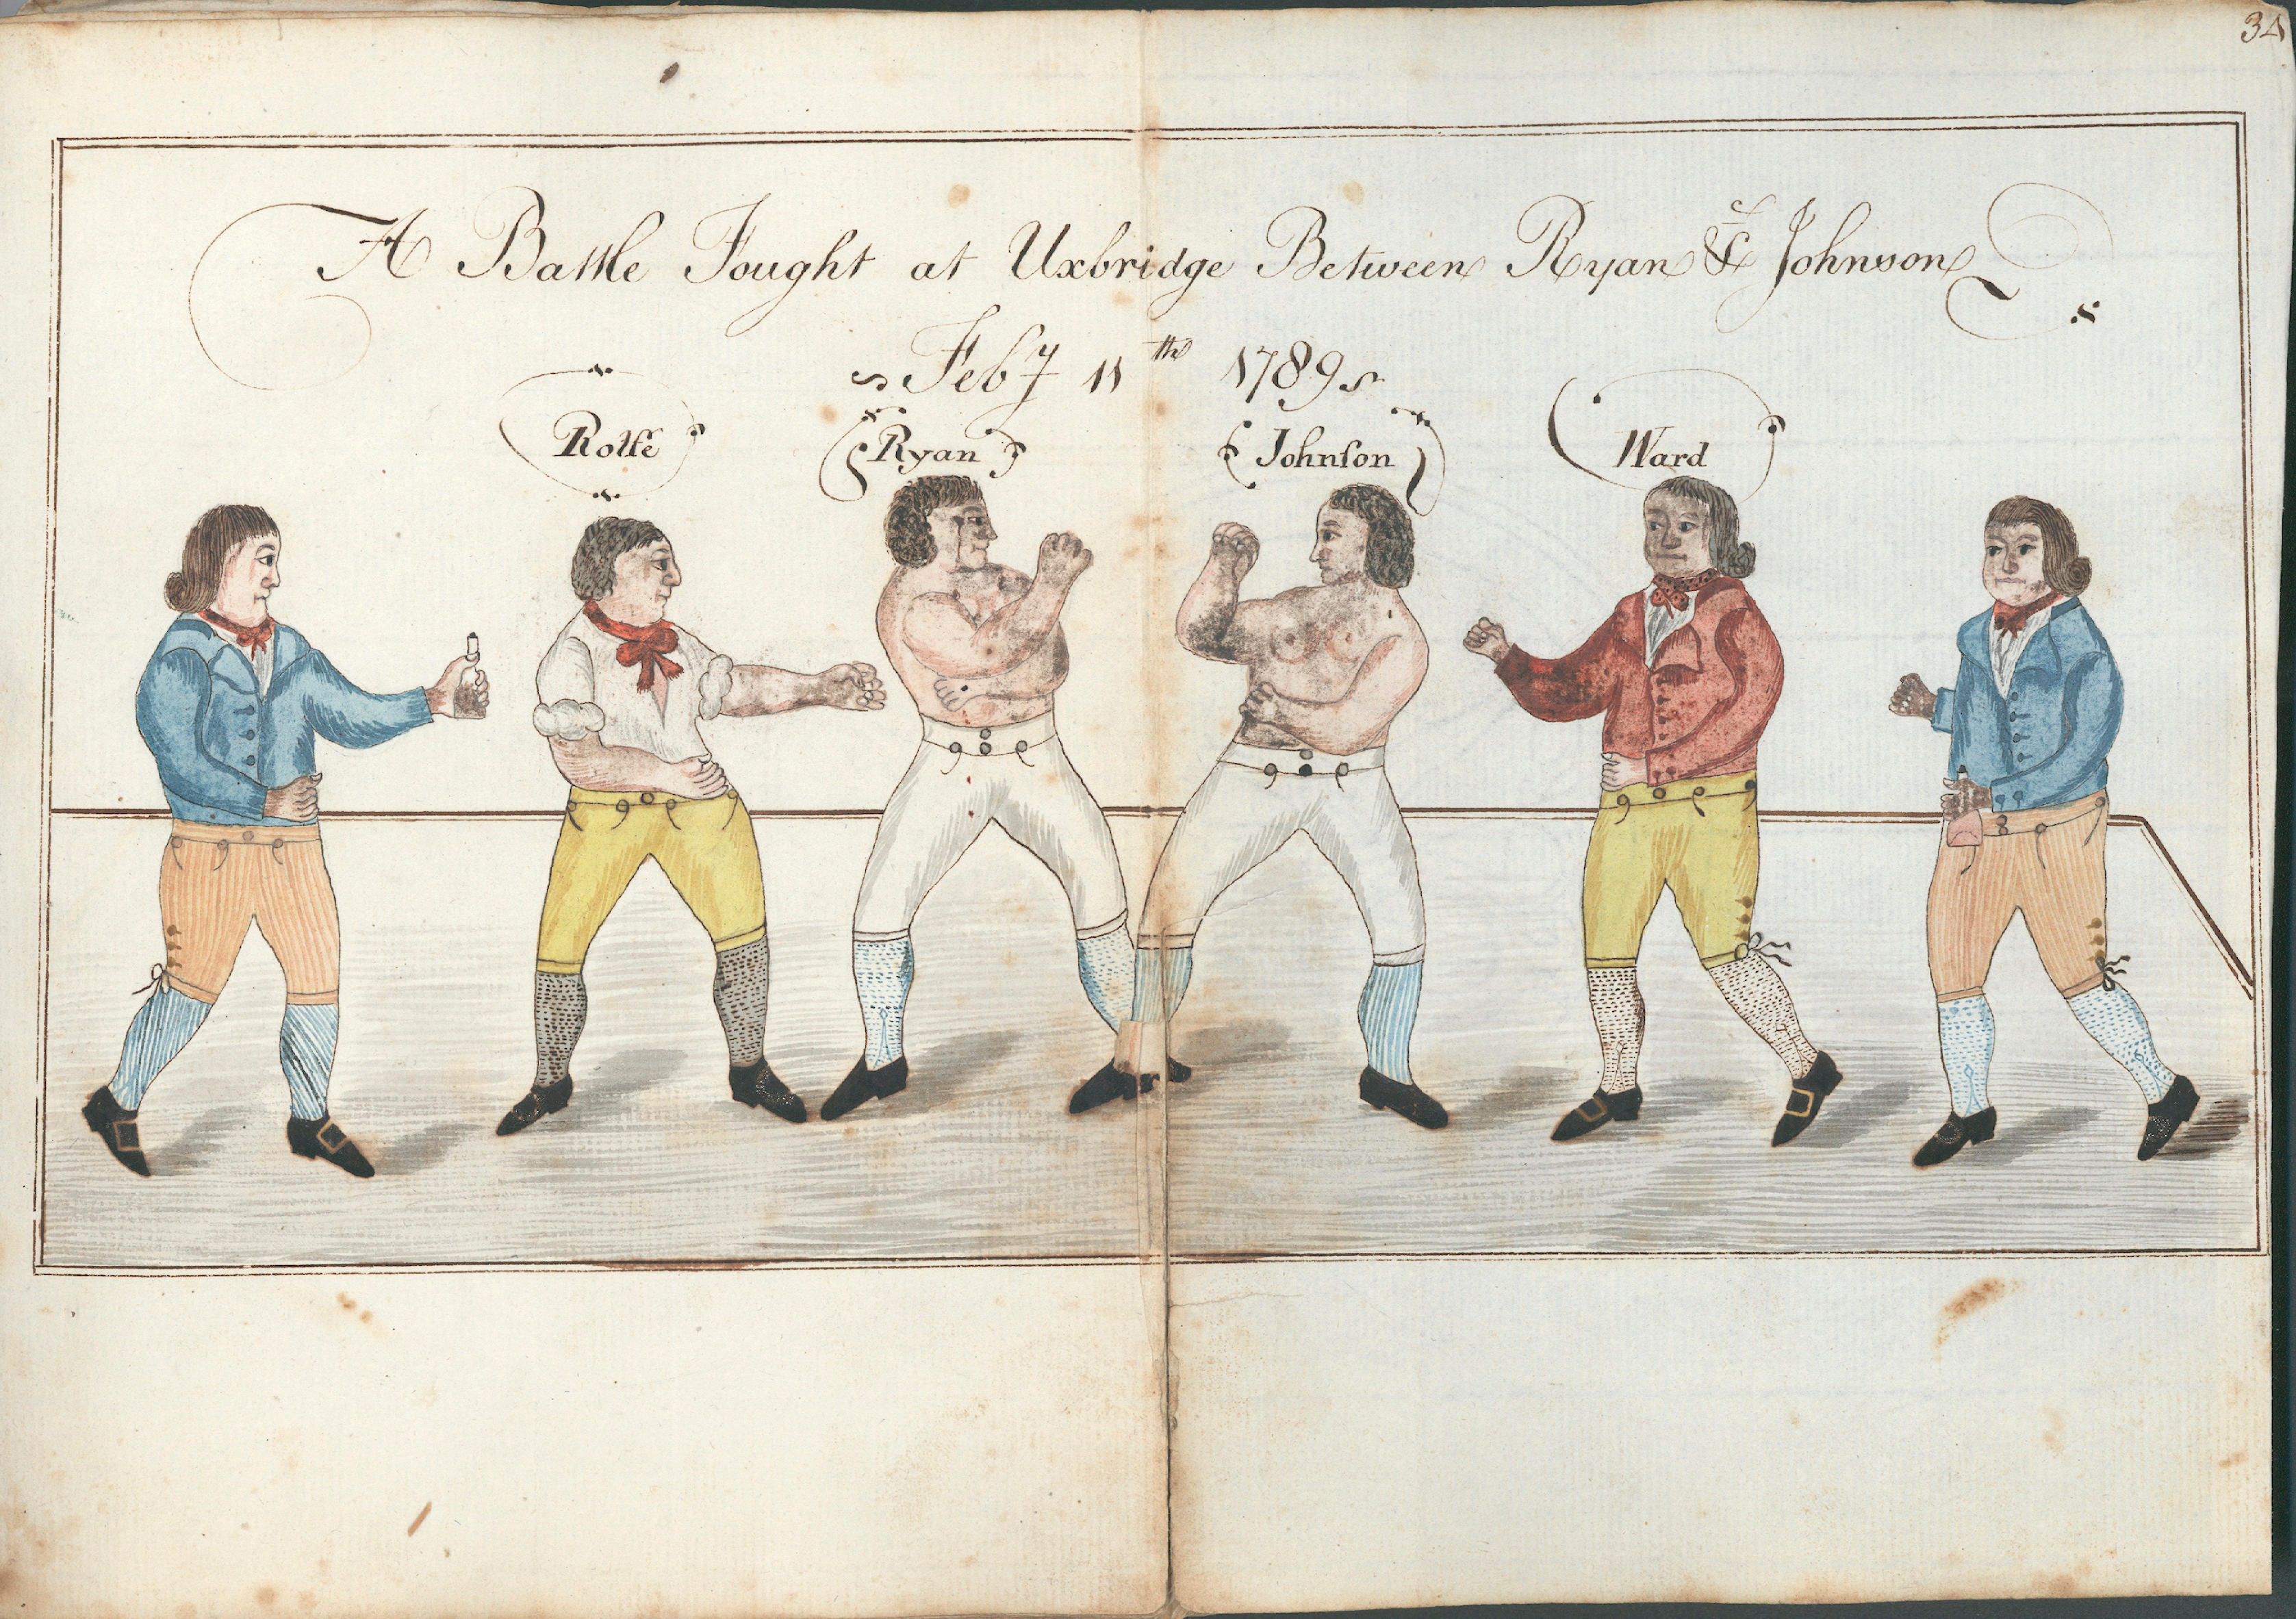 34
A Battle Fought at Uxbridge Between Ryan & Johnson
Feby 11th 1789
Rolfe
Ryan
Johnſon
Ward